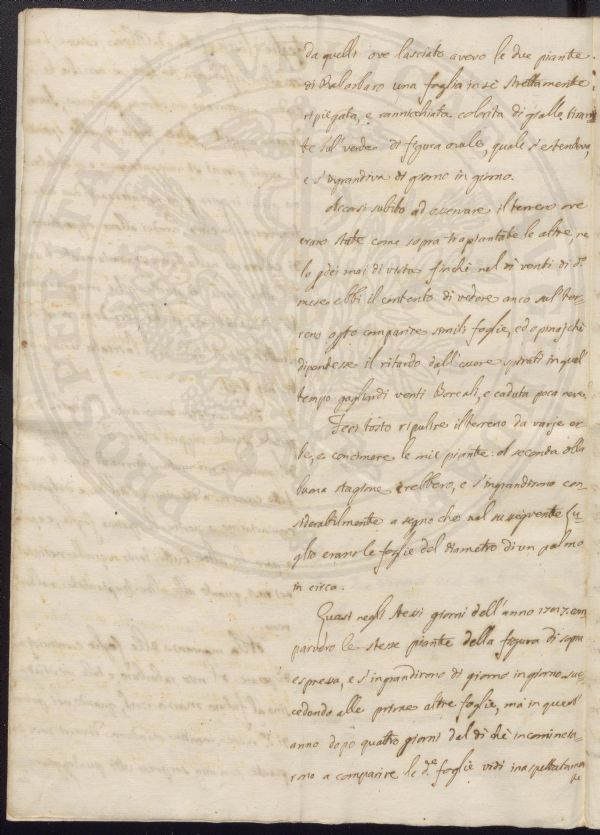 da quelli ove lasciato avevo le due piante
di Rabarbaro una foglia in sè strettamente
ripiegata, e rannichiata colorita di giallo tiran
te sul verde di figura ovale, quale s'estendeva,
e s'ingrandiva di giorno in giorno.
Accorsi subito ad osservare il terreno ove
erano state come sopra trapiantate le altre, ne
lo perdei mai di vista finchè nel dì venti di do.
mese ebbi il contento di vedere anco sul ter-
reno comparire simili foglie, ed opinai che
dipendesse il ritardo dall'essere spirati in quel
tempo gagliardi venti Boreali, e caduta poca neve.
Feci tosto ripulire il terreno da varie er
be, e concimare le mie piante: al seconda della
buona stagione crebbero, e s'ingrandirono con-
siderabilmente a segno che nel susseguente Lu-
glio erano le foglie del diametro di un palmo
in circa.
Quasi negli stessi giorni dell'anno com
parvero le stesse piante della figura di sopra
espressa, e s'ingrandirono di giorno in giorno suc-
cedendo alle prime altre foglie, ma in quest'
anno dopo quattro giorni dal dì che incomincia-
rono a comparire le de. foglie vidi inaspettatamen
te
PROSPERITATI PVBLICAE